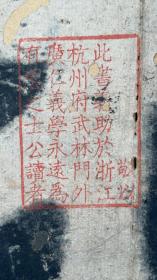 此書義助於浙江
杭州府武林門外
廣仁義學永遠爲
有志之士公讀者